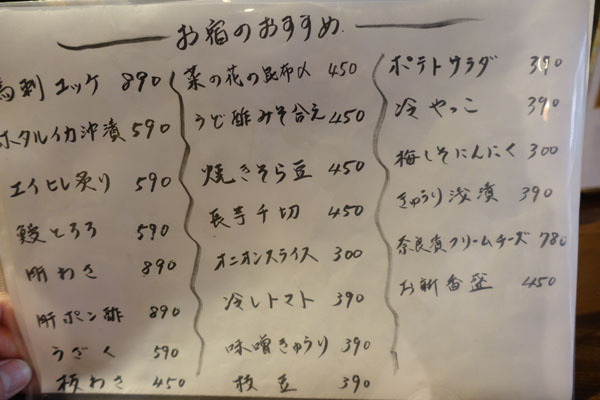 お宿のおすすめ
馬刺ユッケ 890
ホタルイカ沖漬 590
エイヒレ炙り 590
鮫とろろ 590
所わさ 890
所ポン酢 890
うざく 590
板わさ 450
菜の花の昆布〆 450
うど酢みそ合え 450
焼きそら豆 450
長芋千切 450
オニオンスライス 300
冷しトマト 390
味噌きゅうり 390
枝豆 390
ポテトサラダ 390
冷やっこ 390
梅しそにんにく 300
きゅうり浅漬 390
奈良漬クリームチーズ 780
お新香盛 450